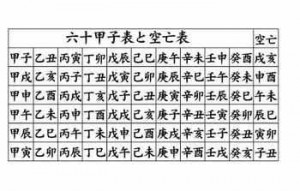 六十甲子表と空亡表 空亡
甲子 乙丑 丙寅 丁卯 戊辰 己巳 庚午 辛未 壬申 癸酉 戌亥
甲戌 乙亥 丙子 丁丑 戊寅 己卯 庚辰 辛巳 壬午 癸未 申酉
甲申 乙酉 丙戌 丁亥 戊子 己丑 庚寅 辛卯 壬辰 癸巳 午未
甲午 乙未 丙申 丁酉 戊戌 己亥 庚子 辛丑 壬寅 癸卯 辰巳
甲辰 乙巳 丙午 丁未 戊申 己酉 庚戌 辛亥 壬子 癸丑 寅卯
甲寅 乙卯 丙辰 丁巳 戊午 己未 庚申 辛酉 壬戌 癸亥 子丑